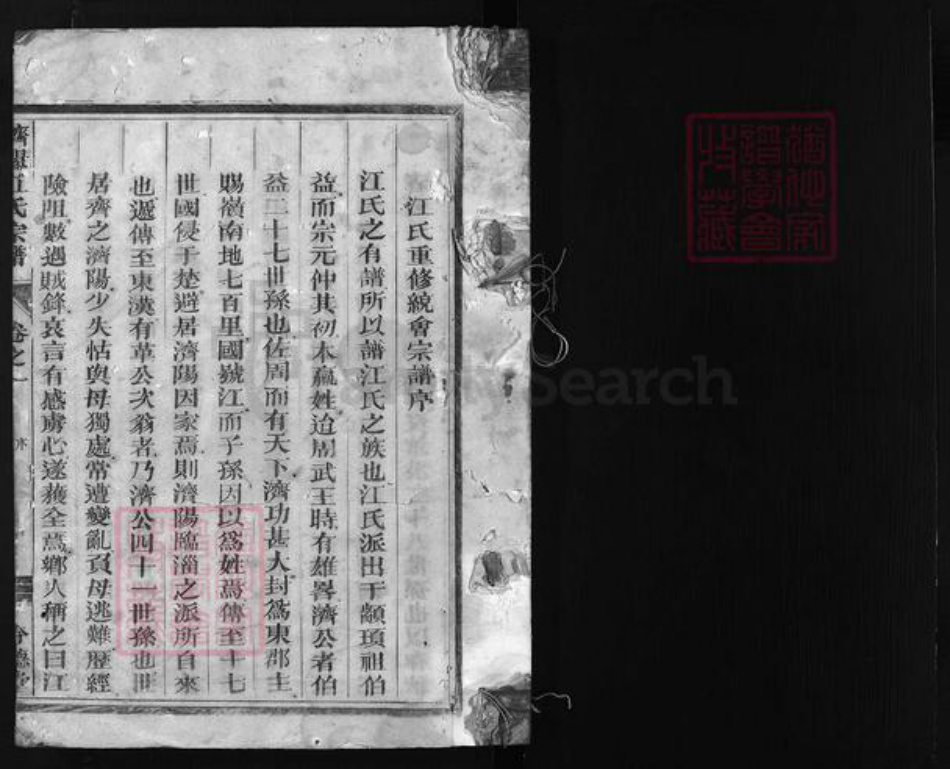 江氏重修統會宗譜序
江氏之有譜所以譜江氏之族也江氏派出于顓頊祖伯
益而宗元仲其初本嬴姓迨周武王時有雄畧濟公者伯
益二十七世孫也佐周而有天下濟功甚大封爲東郡主
賜嶺南地七百里國號江而子孫因以爲姓焉傳至十七
世國侵于楚避居濟陽因家焉則濟陽臨淄之派所自來
也遞傳至東漢有革公次翁者乃濟公四十一世孫也世
居齊之濟陽少失怙與母獨處常遭變亂負母逃難歴經
險阻數遇賊鋒哀言有感虜心遂獲全焉鄉人稱之曰江
濟陽江氏宗譜 卷之一 序
譜學會
收藏
Search